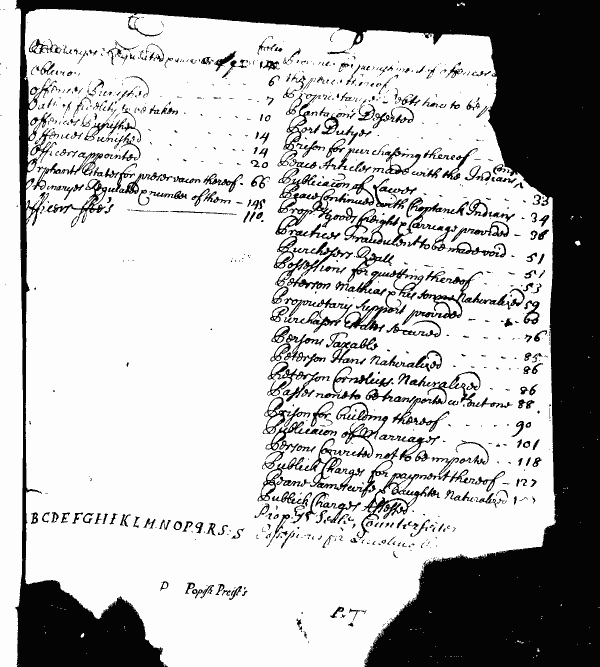 folio
O P
Oblivion 6
Offences Punished 7
Oath of fidelity to be taken 10
Offences Punished
Offences Punished 14
Officers appointed 14
20
Orphants Estates for preservacon thereof 66
Ordinaryes Regulated & number of them 145
Officers ffees 110
for punishment of offences
Proprietarys debts how to be
Plantacons Deserted
Port Dutyes
Prison for purchasing thereof
Peace Articles made with the Indians
Publicacon of Lawes 33
Peace continued with Choptanck Indians 34
Propr Goods freight & Carriage provided 38
Practices Fraudulent to be made void 51
Purchasers Reall 51
Possessions for quietting thereof 53
Peterson Mathias & his sonns Naturalized 59
Proprietary Support provided 60
Purchasers Estates secured 76
Persons Taxable 85
Peterson Hans Naturalized 86
Peterson Cornelius Naturalized 86
Passes none to be transported without one 88
Prison for building thereof 90
Publicacon of Marriages 101
Persons Convicted not to be imported 118
Publick Charges for payment thereof 127
Peane James wife & Daughter Naturalized
Publick Charges Assessed
Propr Seale Counterfeiter
BCDEFGHIKLMNOPQRS S
P Popish Preist's
P T